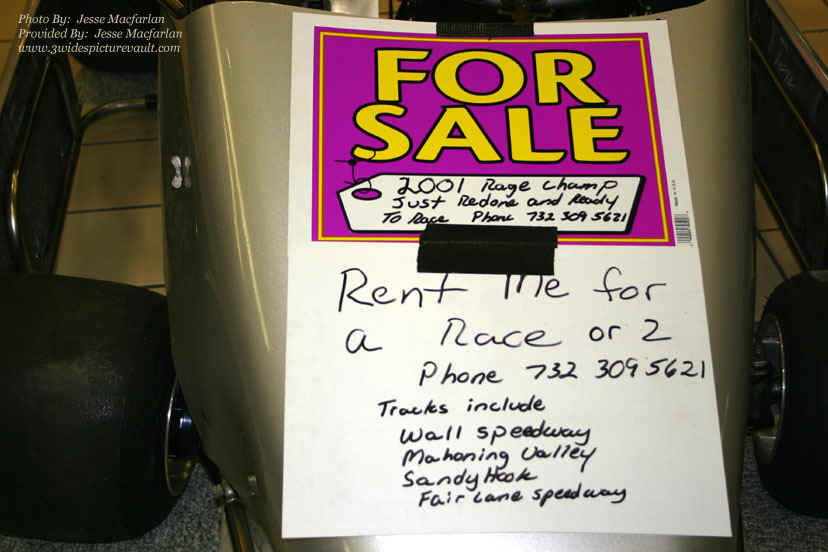 Photo By:  Jesse Macfarlan
Provided By:  Jesse Macfarlan
www.3widespicturevault.com
FOR
SALE
2001 Rage Champ
Just Redone and Ready
To Race Phone 732 309 5621
Rent Me for
a Race or 2
Phone 732 309 5621
Tracks include
Wall speedway
Mahoning Valley
Sandy Hook
Fair Lane speedway